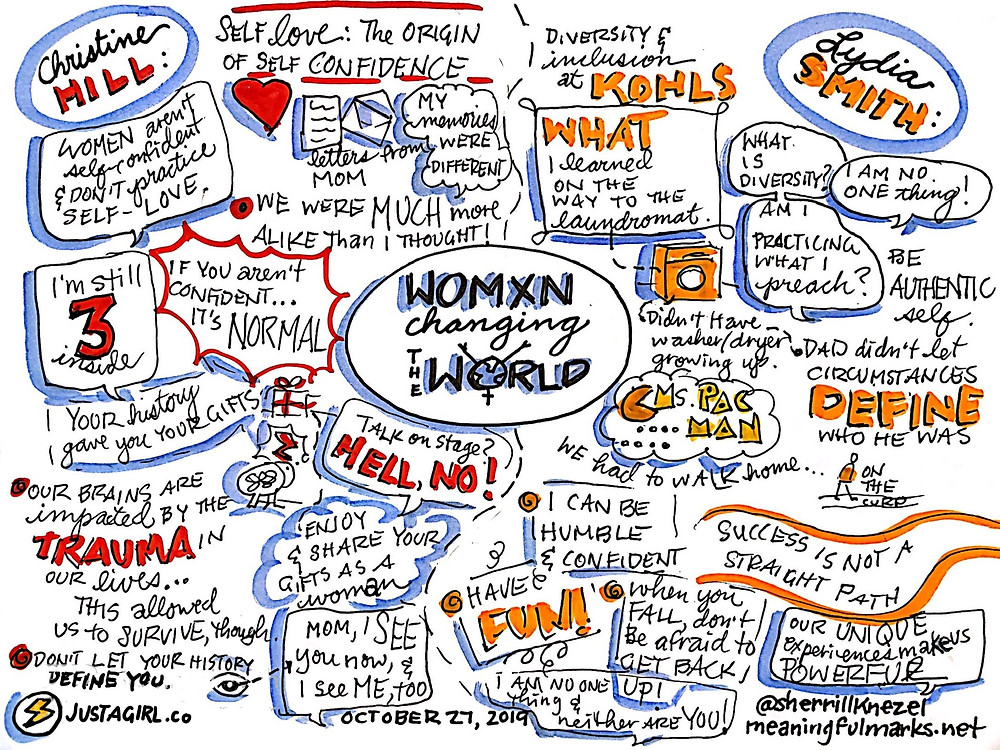 Christine
HILL:
SELF love: The ORIGIN
OF SELF CONFIDENCE
WOMEN aren't
self-confident
& DON'T practice
SELF-LOVE.
letters from
MOM
MY
memories
WERE
DIFFERENT
WE WERE MUCH more
ALIKE than I THOUGHT!
I'm still
3
inside
IF YOU aren't
CONFIDENT...
IT'S NORMAL
YOUR history
gave you YOUR GIFTS
TALK on stage?
HELL, NO!
OUR BRAINS ARE
impacted BY THE
TRAUMA IN
OUR lives...
THIS allowed
US to SURVIVE, though.
DON'T LET YOUR HISTORY
DEFINE YOU.
ENJOY
& SHARE YOUR
GIFTS AS A
woman
MOM, I SEE
you now, &
I see ME, too
JUSTAGIRL.co
WOMXN
changing
THE
WORLD
OCTOBER 27, 2019
DIVERSITY &
inclusion
at KOHLS
Lydia
SMITH:
WHAT
I learned
ON THE
WAY TO THE
laundromat.
WHAT
IS
DIVERSITY?
I AM NO
ONE thing!
AM I
PRACTICING
WHAT I
preach?
BE
AUTHENTIC
self.
Didn't Have
washer/dryer
growing up.
DAD didn't let
CIRCUMSTANCES
DEFINE
WHO HE WAS
Ms. PAC
MAN
WE had to WALK home...
ON
THE
CURB
I CAN BE
HUMBLE
& CONFIDENT
SUCCESS IS NOT A
STRAIGHT PATH
HAVE
FUN!
when you
FALL, don't
Be afraid to
GET BACK
UP!
I AM NO ONE
thing &
neither ARE YOU!
OUR UNIQUE
experiences make US
POWERFUL
@sherrillknezel
meaningfulmarks.net